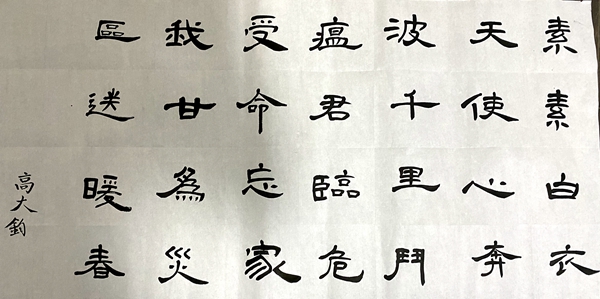 素素白衣
天使心奔
波千里鬥
瘟君臨危
受命忘家
我甘為災
區送暖春
高大鈞